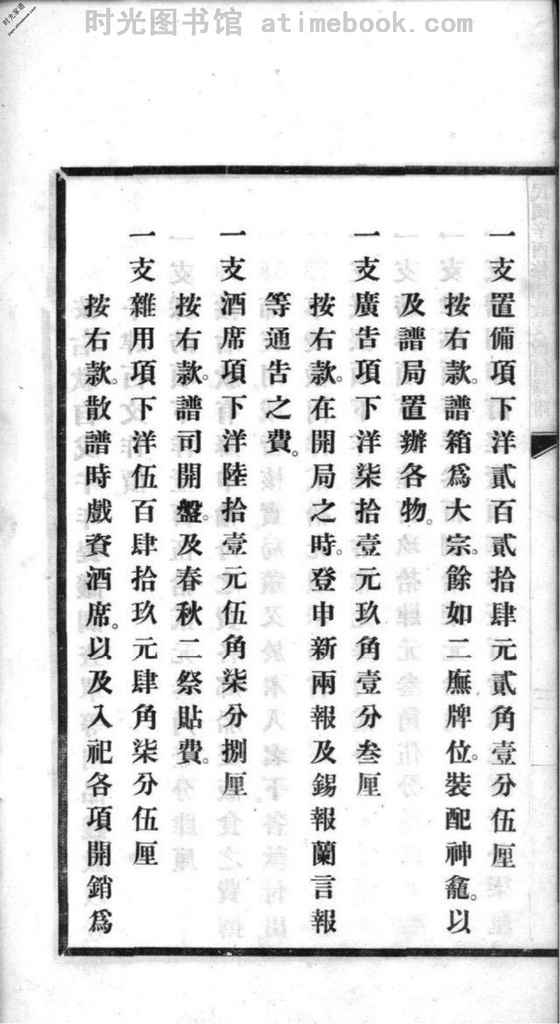 时光图书馆 atimebook.com
一支置備項下洋貳百貳拾肆元貳角壹分伍厘
按右款。譜箱爲大宗。餘如二廡牌位。裝配神龕。以
及譜局置辦各物。
一支廣告項下洋柒拾壹元玖角壹分叁厘
按右款。在開局之時。登申新兩報及錫報蘭言報
等通告之費。
一支酒席項下洋陸拾壹元伍角柒分捌厘
按右款。譜司開盤。及春秋二祭貼費。
一支雜用項下洋伍百肆拾玖元肆角柒分伍厘
按右款。散譜時戲資酒席。以及入祀各項開銷爲